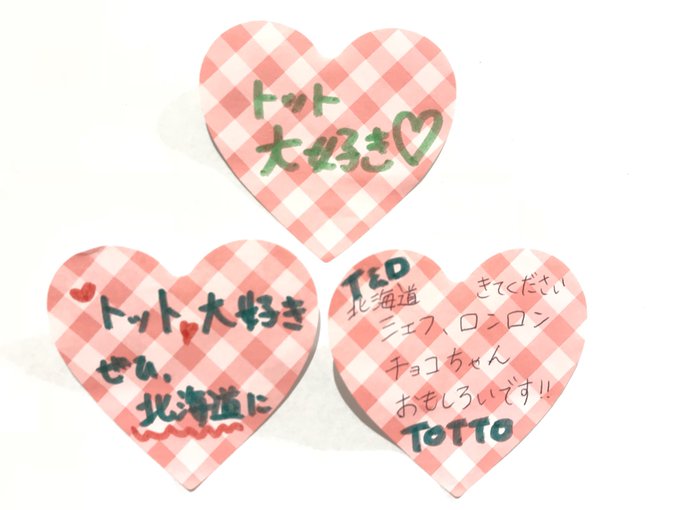 トット
大好き♡
トット 大好き
ぜひ、
北海道に
TED
北海道 きてください
ミエフ、ロンロン
チョコちゃん
おもしろいです!!
TOTTO